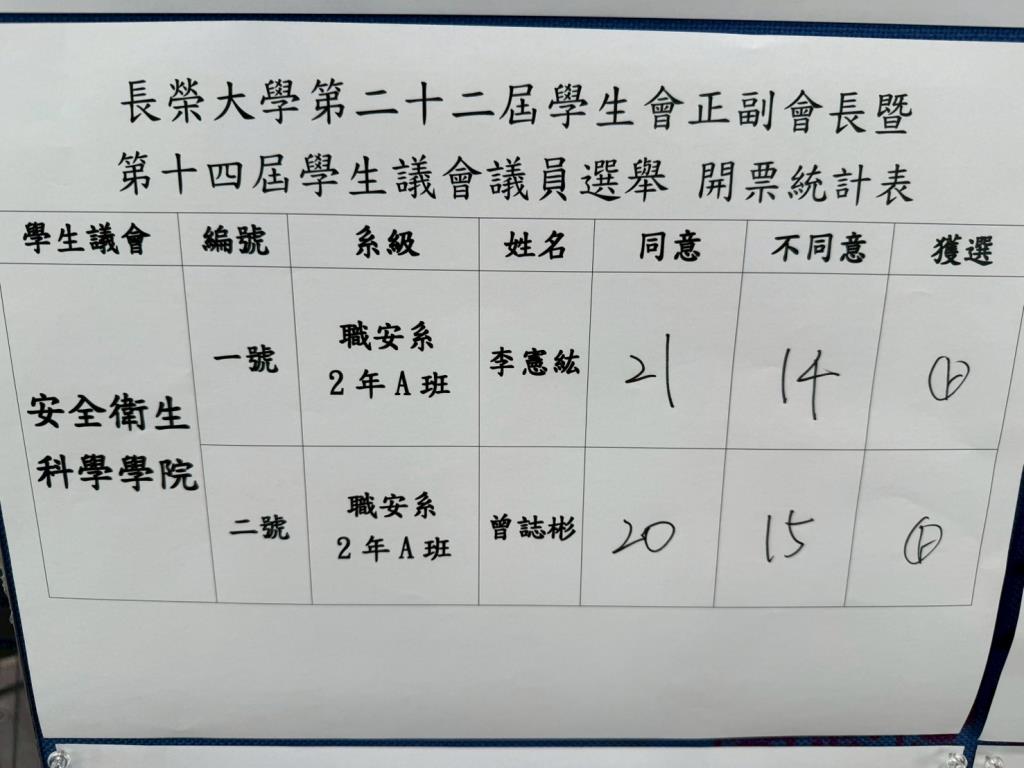 長榮大學第二十二屆學生會正副會長暨
第十四屆學生議會議員選舉 開票統計表
學生議會 編號 系級 姓名 同意 不同意 獲選
安全衛生
科學學院
一號 職安系 2年A班 李憲紘 21 14
二號 職安系 2年A班 曾誌彬 20 15